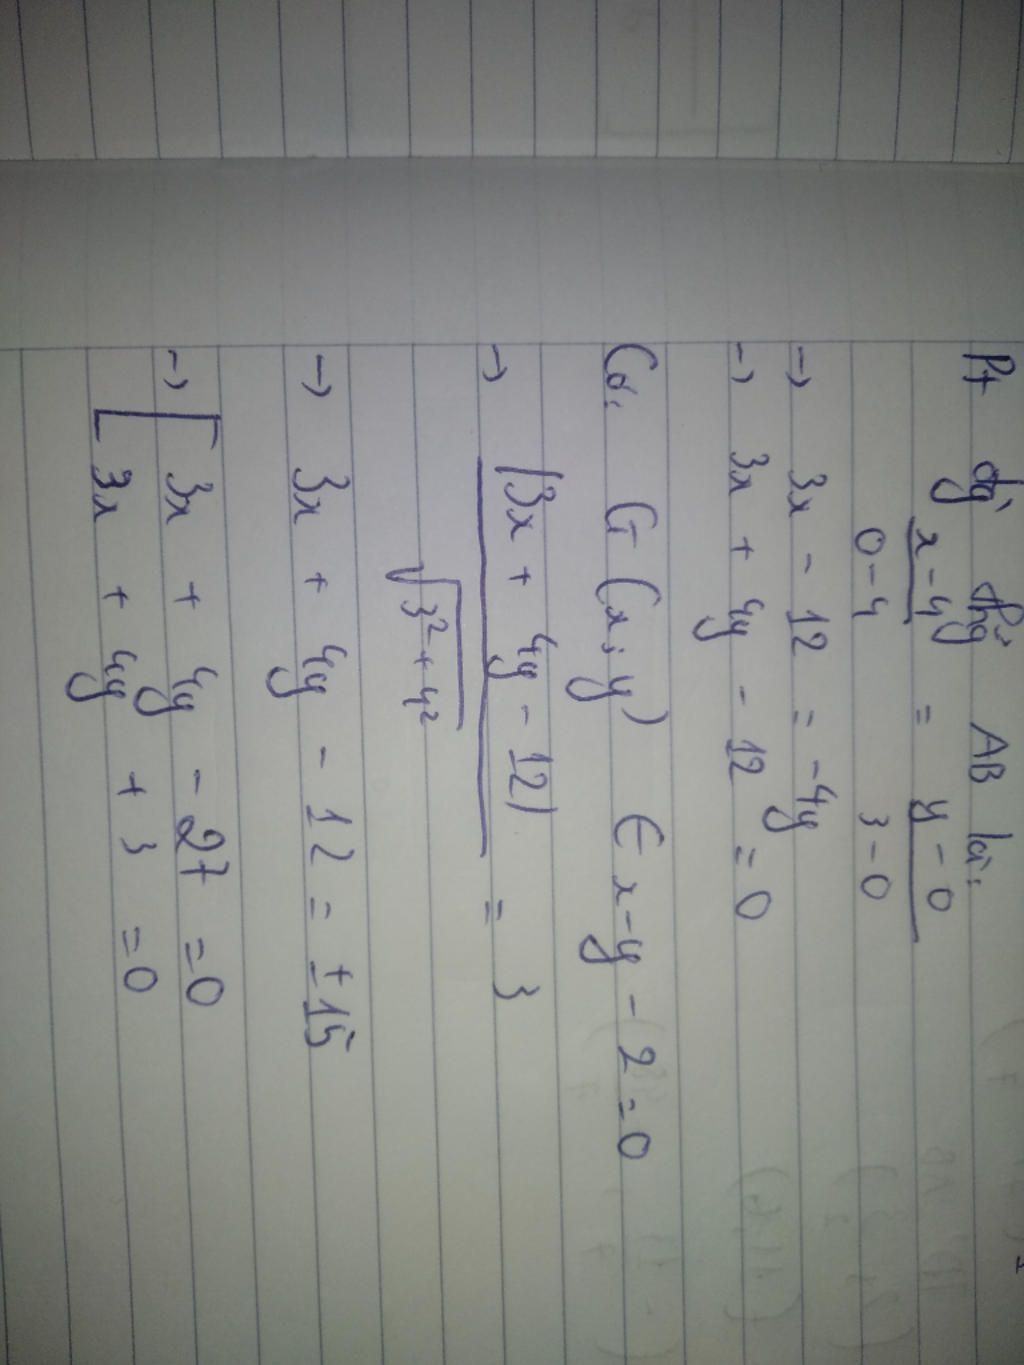 Pt đg` thg̉ AB là:
x-4 = y-0
0-4 3-0
→ 3x - 12 = -4y
→ 3x + 4y - 12 = 0
Có, G (x; y) ∈ x-y - 2 = 0
→ |3x + 4y - 12| = 3
√3²+4²
→ 3x + 4y - 12 = ± 15
→ [ 3x + 4y - 27 = 0
3x + 4y + 3 = 0